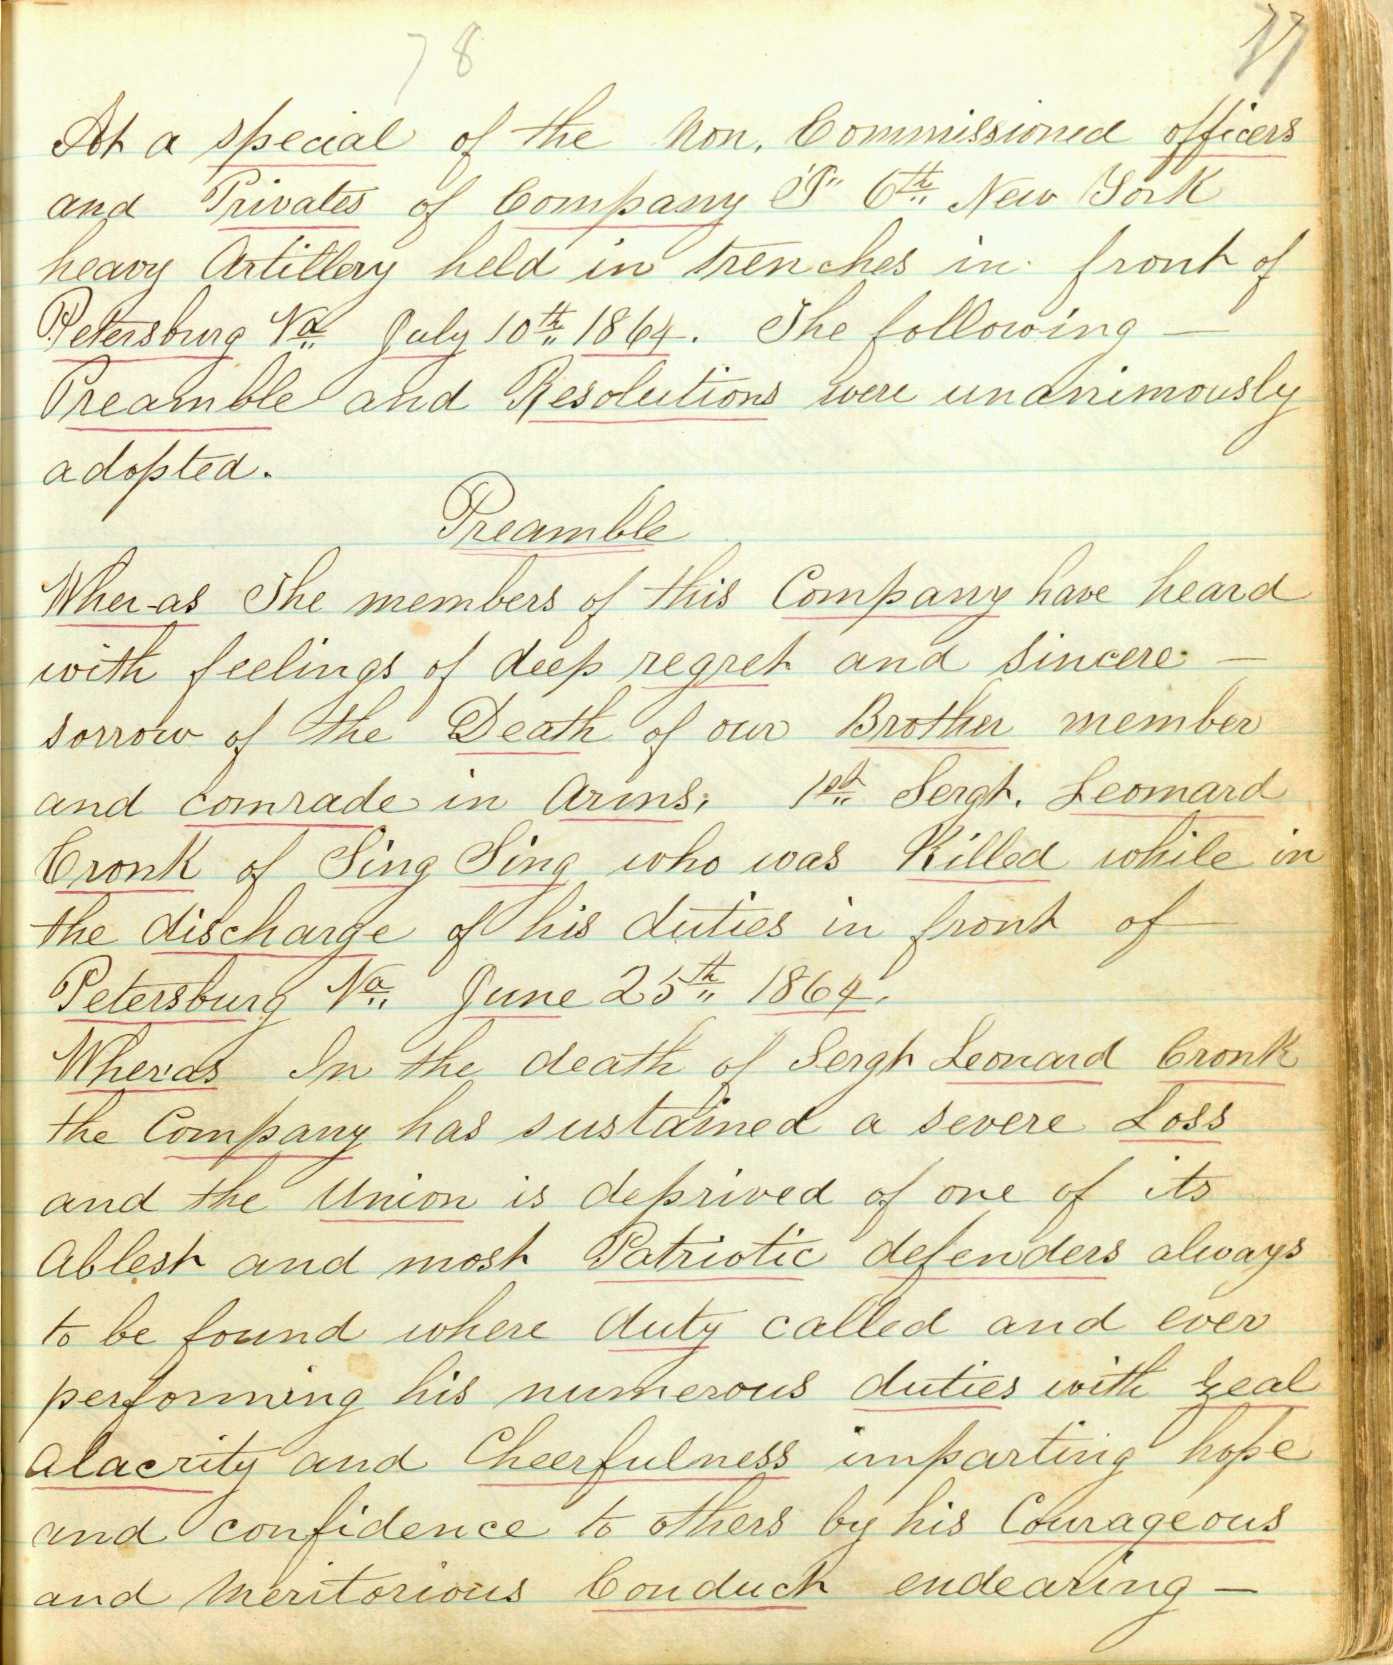 78
77
At a special of the Non. Commissioned officers
and Privates of Company "P" 6th New York
heavy Artillery held in trenches in front of
Petersburg Va July 10th 1864. The following —
Preamble and Resolutions were unanimously
adopted.
Preamble
Wher-as The members of this Company have heard
with feelings of deep regret and sincere —
sorrow of the Death of our Brother member
and comrade in Arms, 1st Sergt. Leonard
Cronk of Sing Sing who was Killed while in
the discharge of his duties in front of —
Petersburg Va June 25th 1864.
Wheras In the death of Sergt Leonard Cronk
the Company has sustained a severe Loss
and the Union is deprived of one of its
Ablest and most Patriotic defenders always
to be found where duty called and ever
performing his numerous duties with zeal
alacrity and Cheerfulness imparting hope
and confidence to others by his Courageous
and Meritorious Conduct endearing —